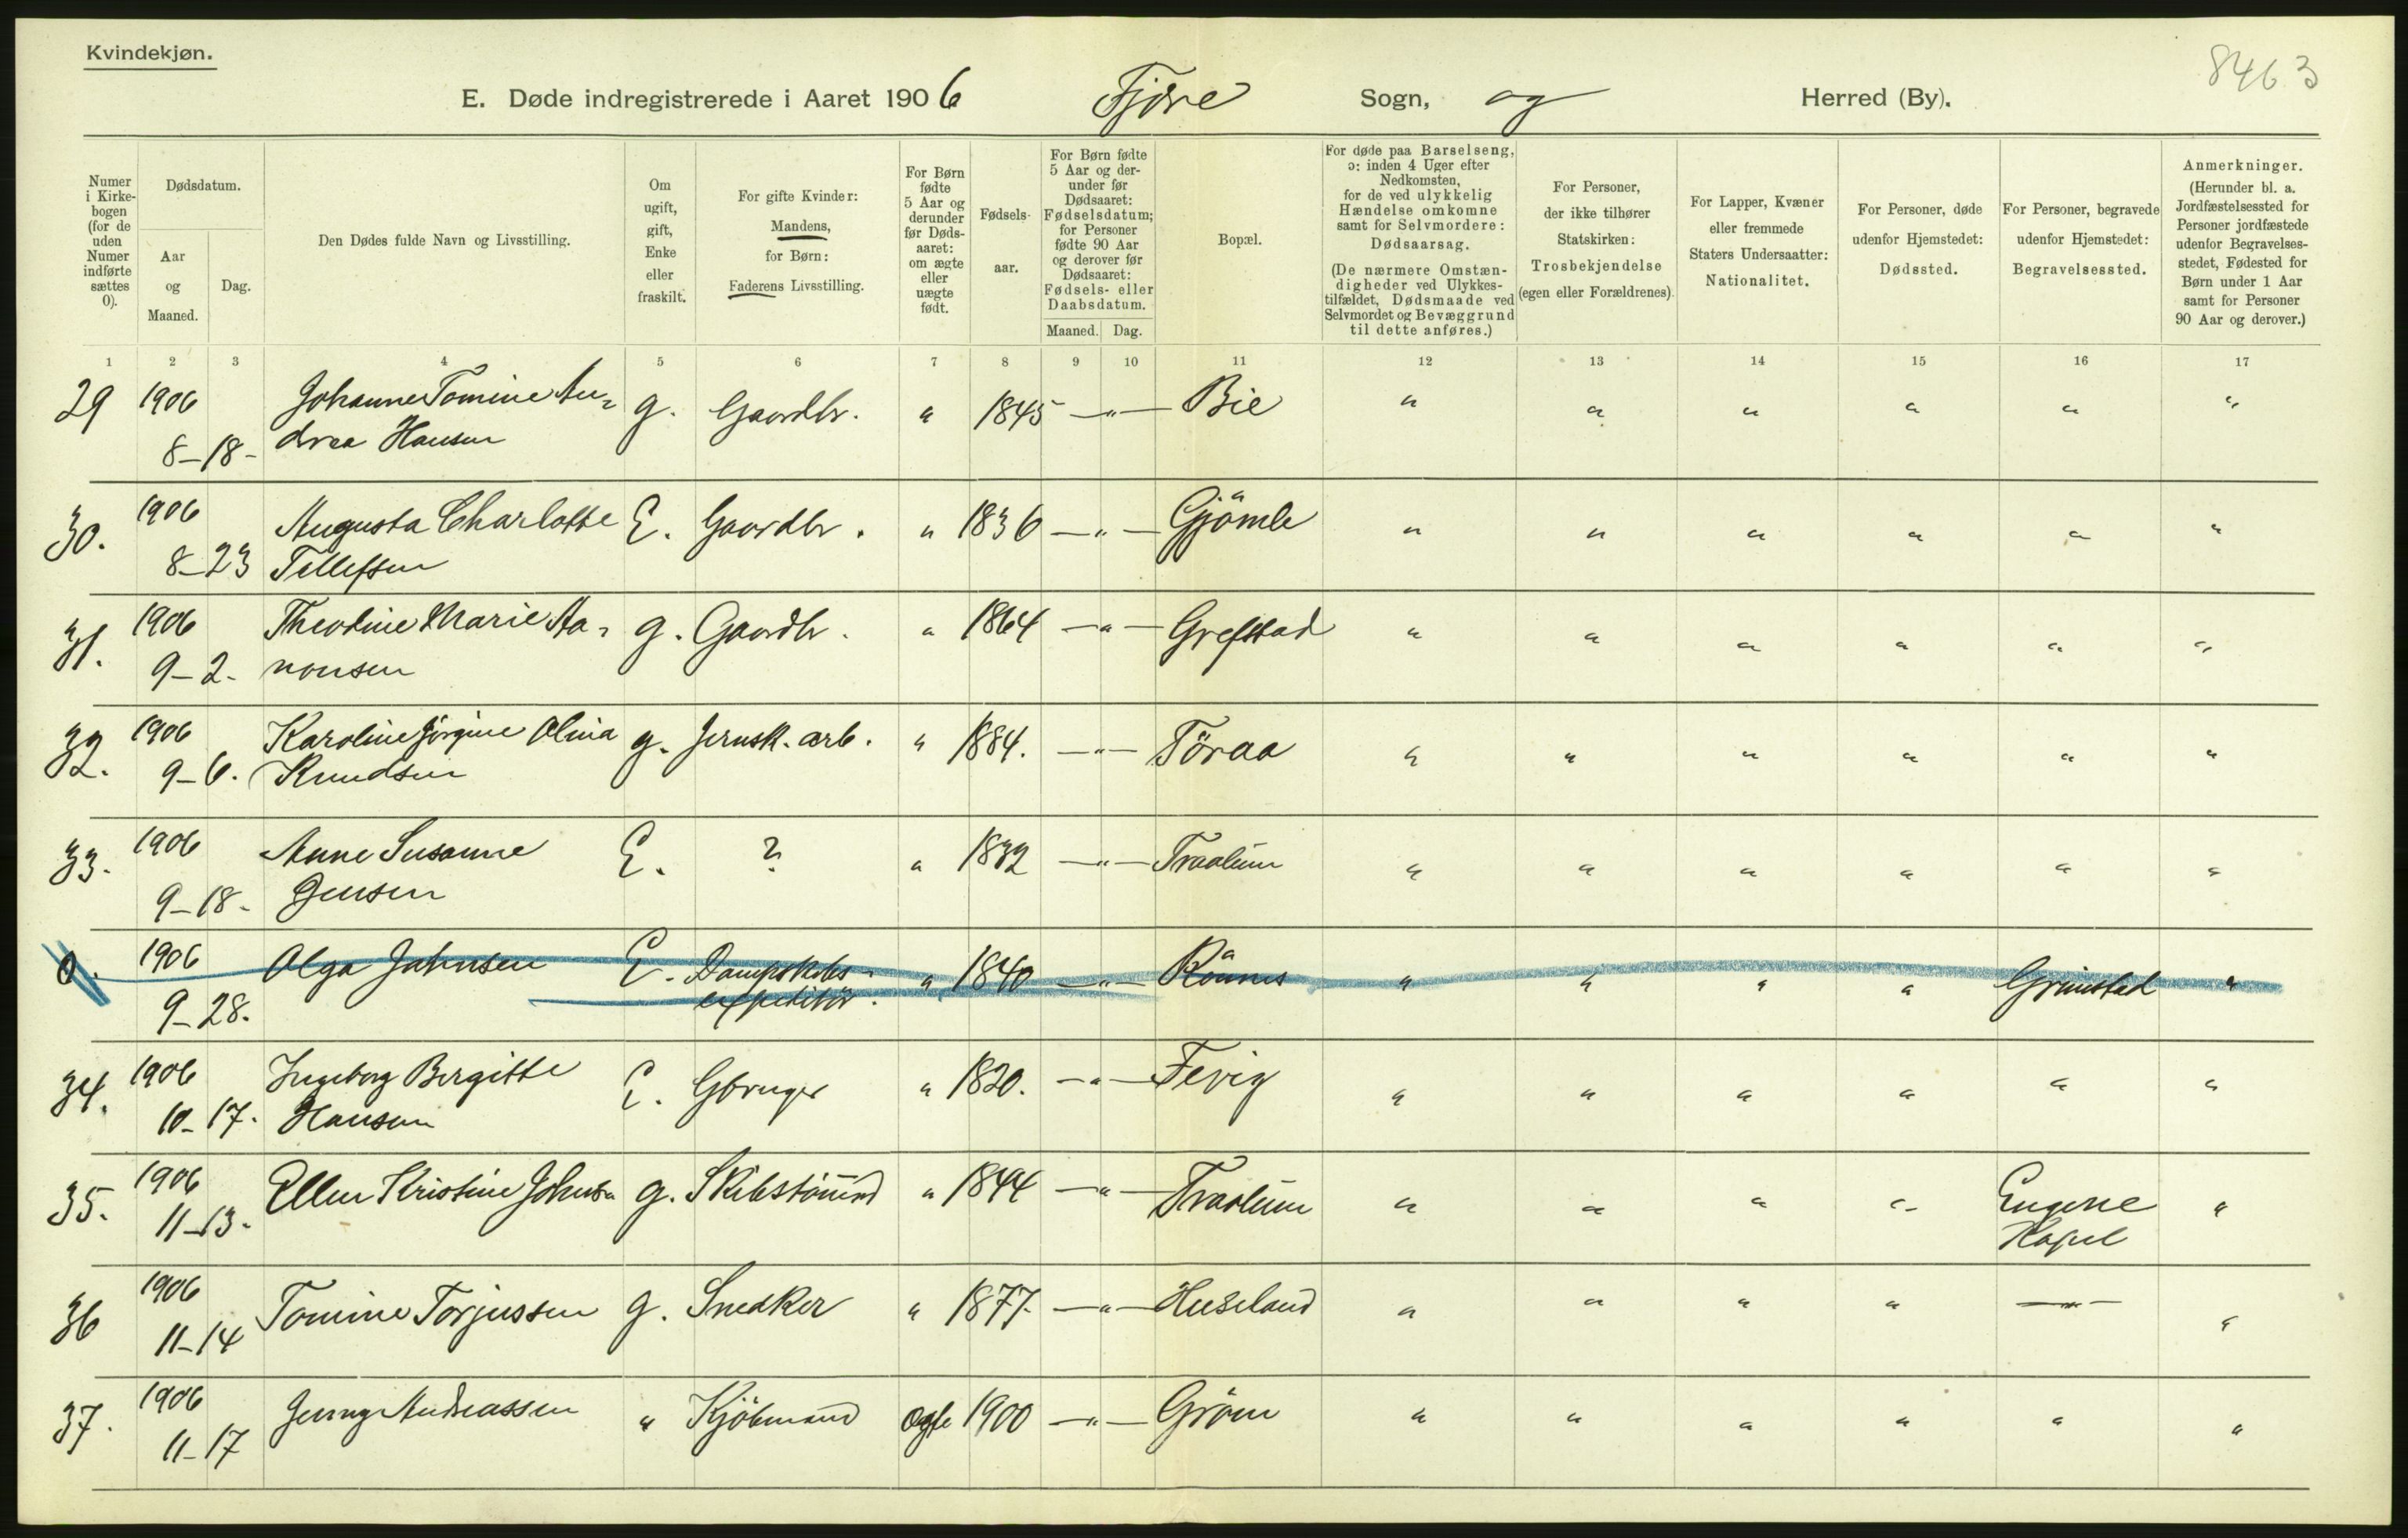 Kvindekjøn.
8463
E. Døde indregistrerede i Aaret 1906 Fjære Sogn, og Herred (By).
Numer i Kirkebogen (for de uden Numer indførte sættes 0).
Dødsdatum.
Aar og Maaned.
Dag.
Den Dødes fulde Navn og Livsstilling.
Om ugift, gift, Enke eller fraskilt.
For gifte Kvinder: Mandens, for Børn: Faderens Livsstilling.
For Børn fødte 5 Aar og derunder før Dødsaaret: om ægte eller uægte født.
Fødselsaar.
For Børn fødte 5 Aar og derunder før Dødsaaret: Fødselsdatum; for Personer fødte 90 Aar og derover før Dødsaaret: Fødsels- eller Daabsdatum.
Maaned. Dag.
Bopæl.
For døde paa Barselseng, ɔ: inden 4 Uger efter Nedkomsten, for de ved ulykkelig Hændelse omkomne samt for Selvmordere: Dødsaarsag.
(De nærmere Omstændigheder ved Ulykkestilfældet, Dødsmaade ved Selvmordet og Bevæggrund til dette anføres.)
For Personer, der ikke tilhører Statskirken: Trosbekjendelse (egen eller Forældrenes).
For Lapper, Kvæner eller fremmede Staters Undersaatter: Nationalitet.
For Personer, døde udenfor Hjemstedet: Dødssted.
For Personer, begravede udenfor Hjemstedet: Begravelsessted.
Anmerkninger.
(Herunder bl. a. Jordfæstelsessted for Personer jordfæstede udenfor Begravelsesstedet, Fødested for Børn under 1 Aar samt for Personer 90 Aar og derover.)
1 2 3 4 5 6 7 8 9 10 11 12 13 14 15 16 17
29 1906 Johanne Tomine An- g. Gaardbr. " 1845 —"— Bie " " " " " "
8–18– drea Hansen
30. 1906 Augusta Charlotte E. Gaardbr. " 1836 —"— Gjömle " " " " " "
8–23 Tellefsen
31. 1906 Theodine Marie Aa- g. Gaardbr. " 1864 —"— Grefstad " " " " " "
9–2– nonsen
32. 1906 Karoline Jörgine Olina g. Jernsk. arb. " 1884. —"— Töraa " " " " " "
9–6. Knudsen
33. 1906 Anne Susanne E. ? " 1832 —"— Traalum " " " " " "
9–18– Jensen
0. 1906 Olga Jahnsen E. Dampskibs- " 1840 —"— Rönnes " " " " Grimstad "
9–28. expeditör.
34. 1906 Ingeborg Birgitte E. Gbruger " 1820. —"— Fevig " " " " " "
10–17. Hansen
35. 1906 Ellen Kristine Johnsen g. Skibstömmd " 1844 —"— Traalum " " " " Eugene "
11–13. Kapel
36 1906 Tomine Torjussen g. Snedker " 1877. —"— Huseland " " " " —"— "
11–14
37. 1906 Jenny Andreassen " Kjöbmand ægte 1900 —"— Gröm " " " " " "
11–17